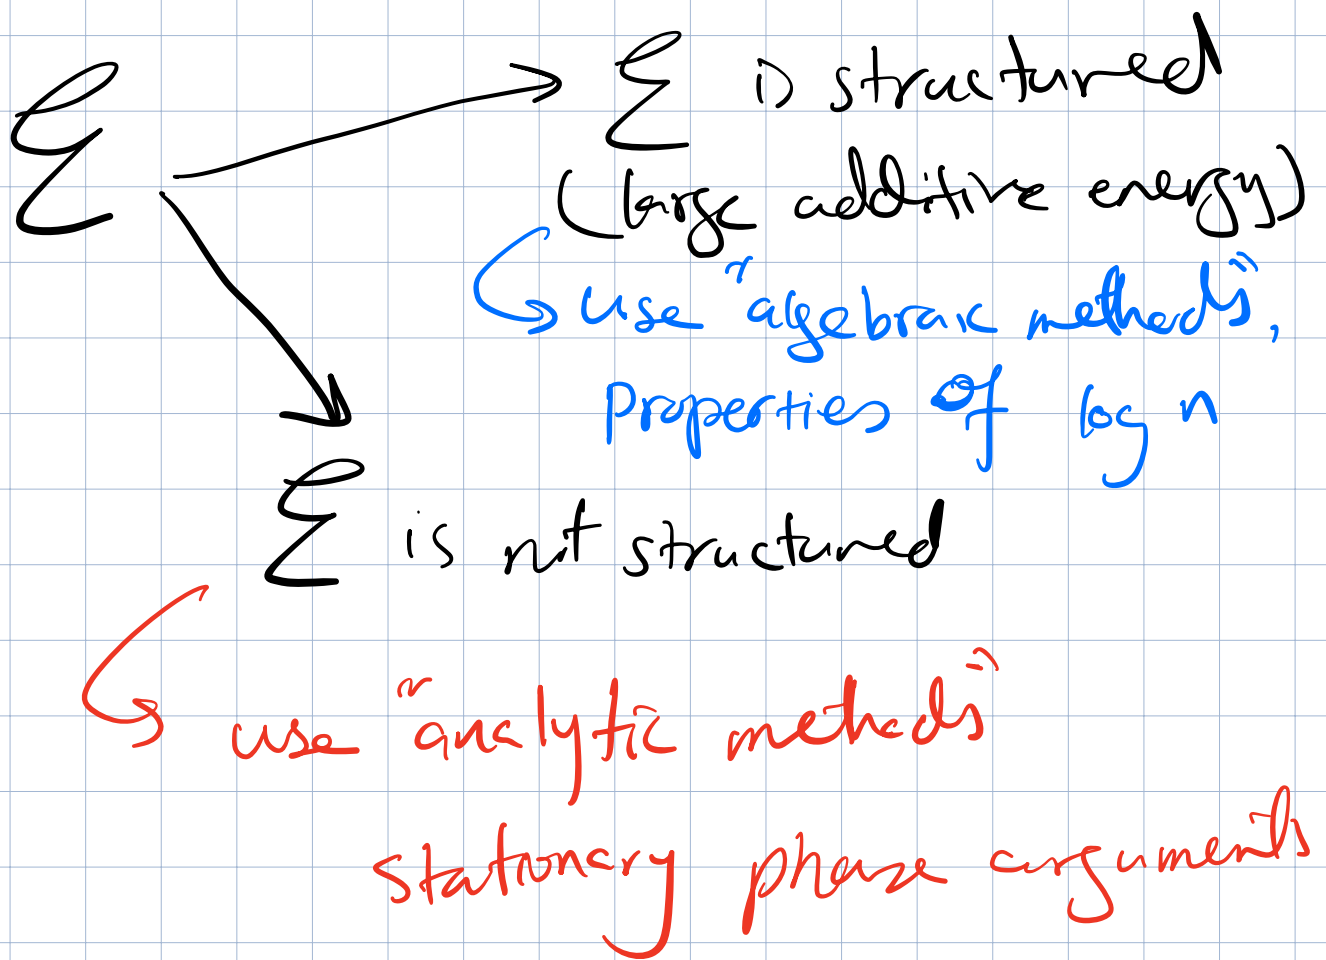 ℰ
ℰ is structured
(large additive energy)
use "algebraic methods",
properties of log n
ℰ is not structured
use "analytic methods"
stationary phase arguments